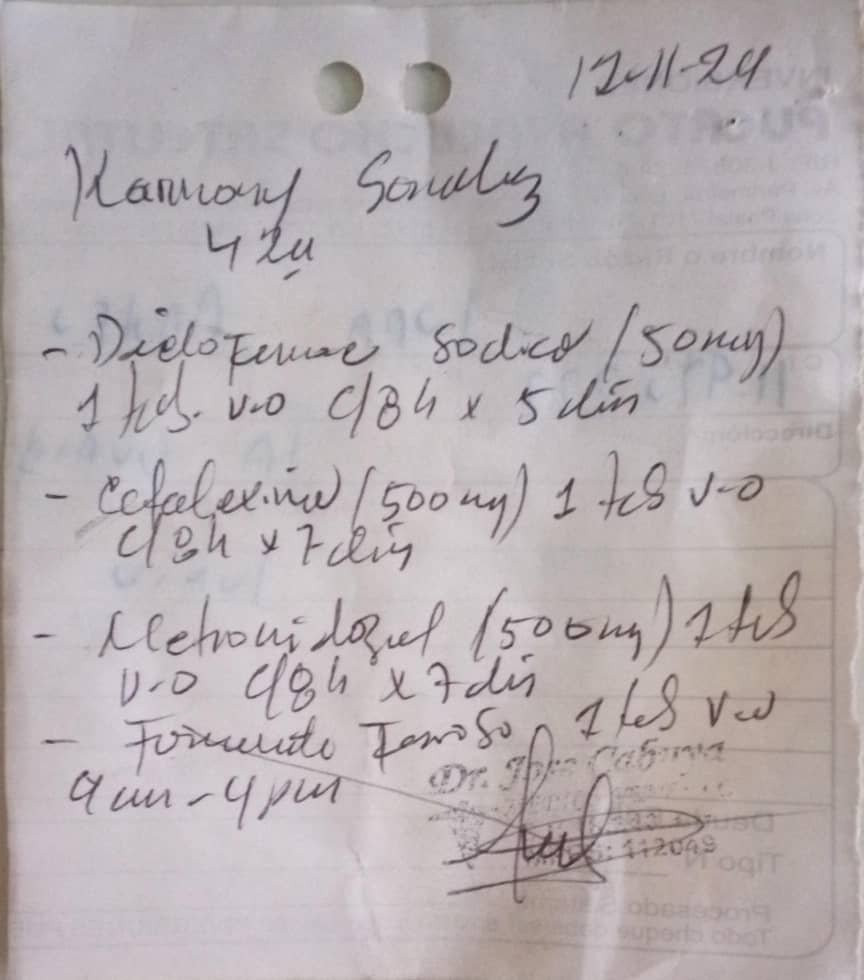 12-11-24
Karmary Gonzalez
42a
- Diclofenac Sodico (50mg)
1 tab. v.o c/8h x 5 dias
- Cefalexina (500mg) 1 tab v-o
c/8h x 7 dias
- Metronidazol (500mg) 1 tab
v.o c/8h x 7 dias
- Fumarato Ferroso 1 tab v.o
9am - 4pm
Dr. Jose Cabrera
112049